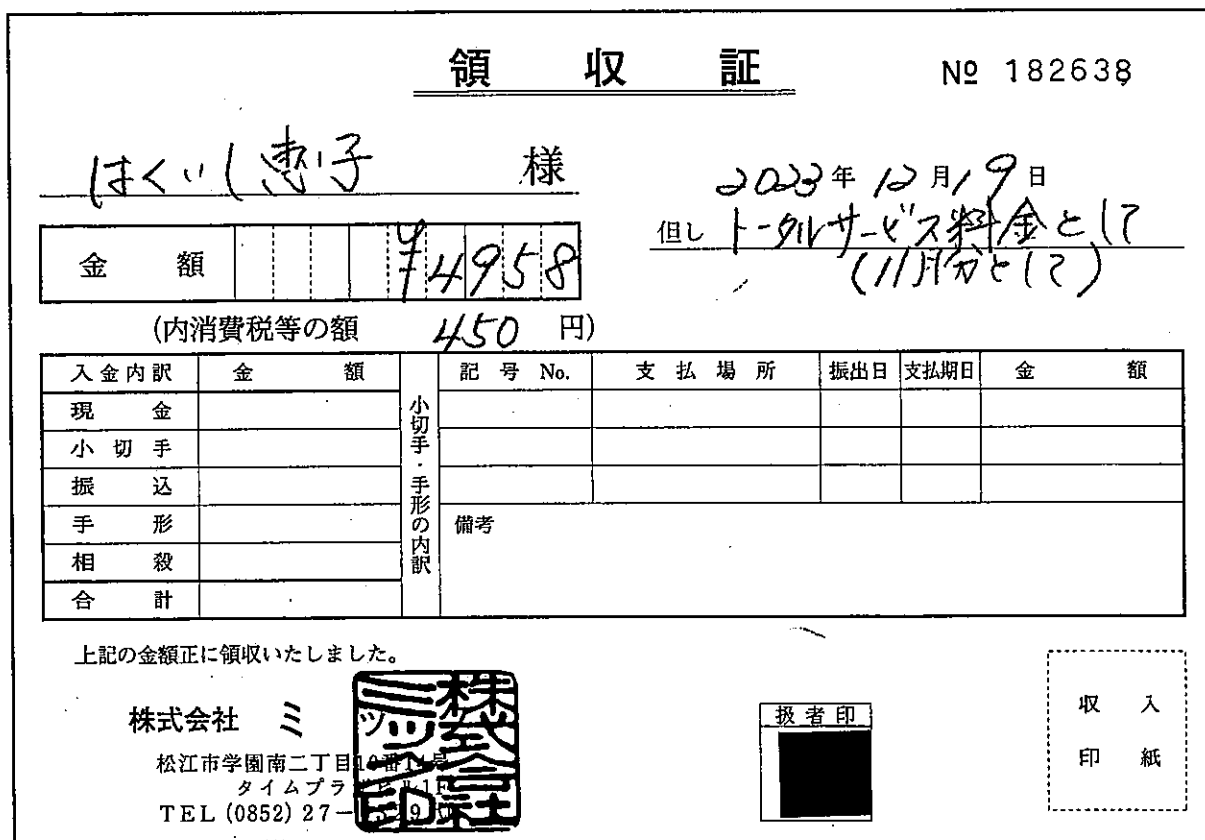 領収証
№ 182638
はくいし恵子 様
2023年12月19日
但し トータルサービス料金として
(11月分として)
金額 ¥4958
(内消費税等の額 450 円)
入金内訳 金額 小切手・手形の内訳 記号 No. 支払場所 振出日 支払期日 金額
現金
小切手
振込
手形
備考
相殺
合計
上記の金額正に領収いたしました。
株式会社 ミ
松江市学園南二丁目
タイムプラ
TEL (0852) 27-
株式会社
扱者印
収入
印紙